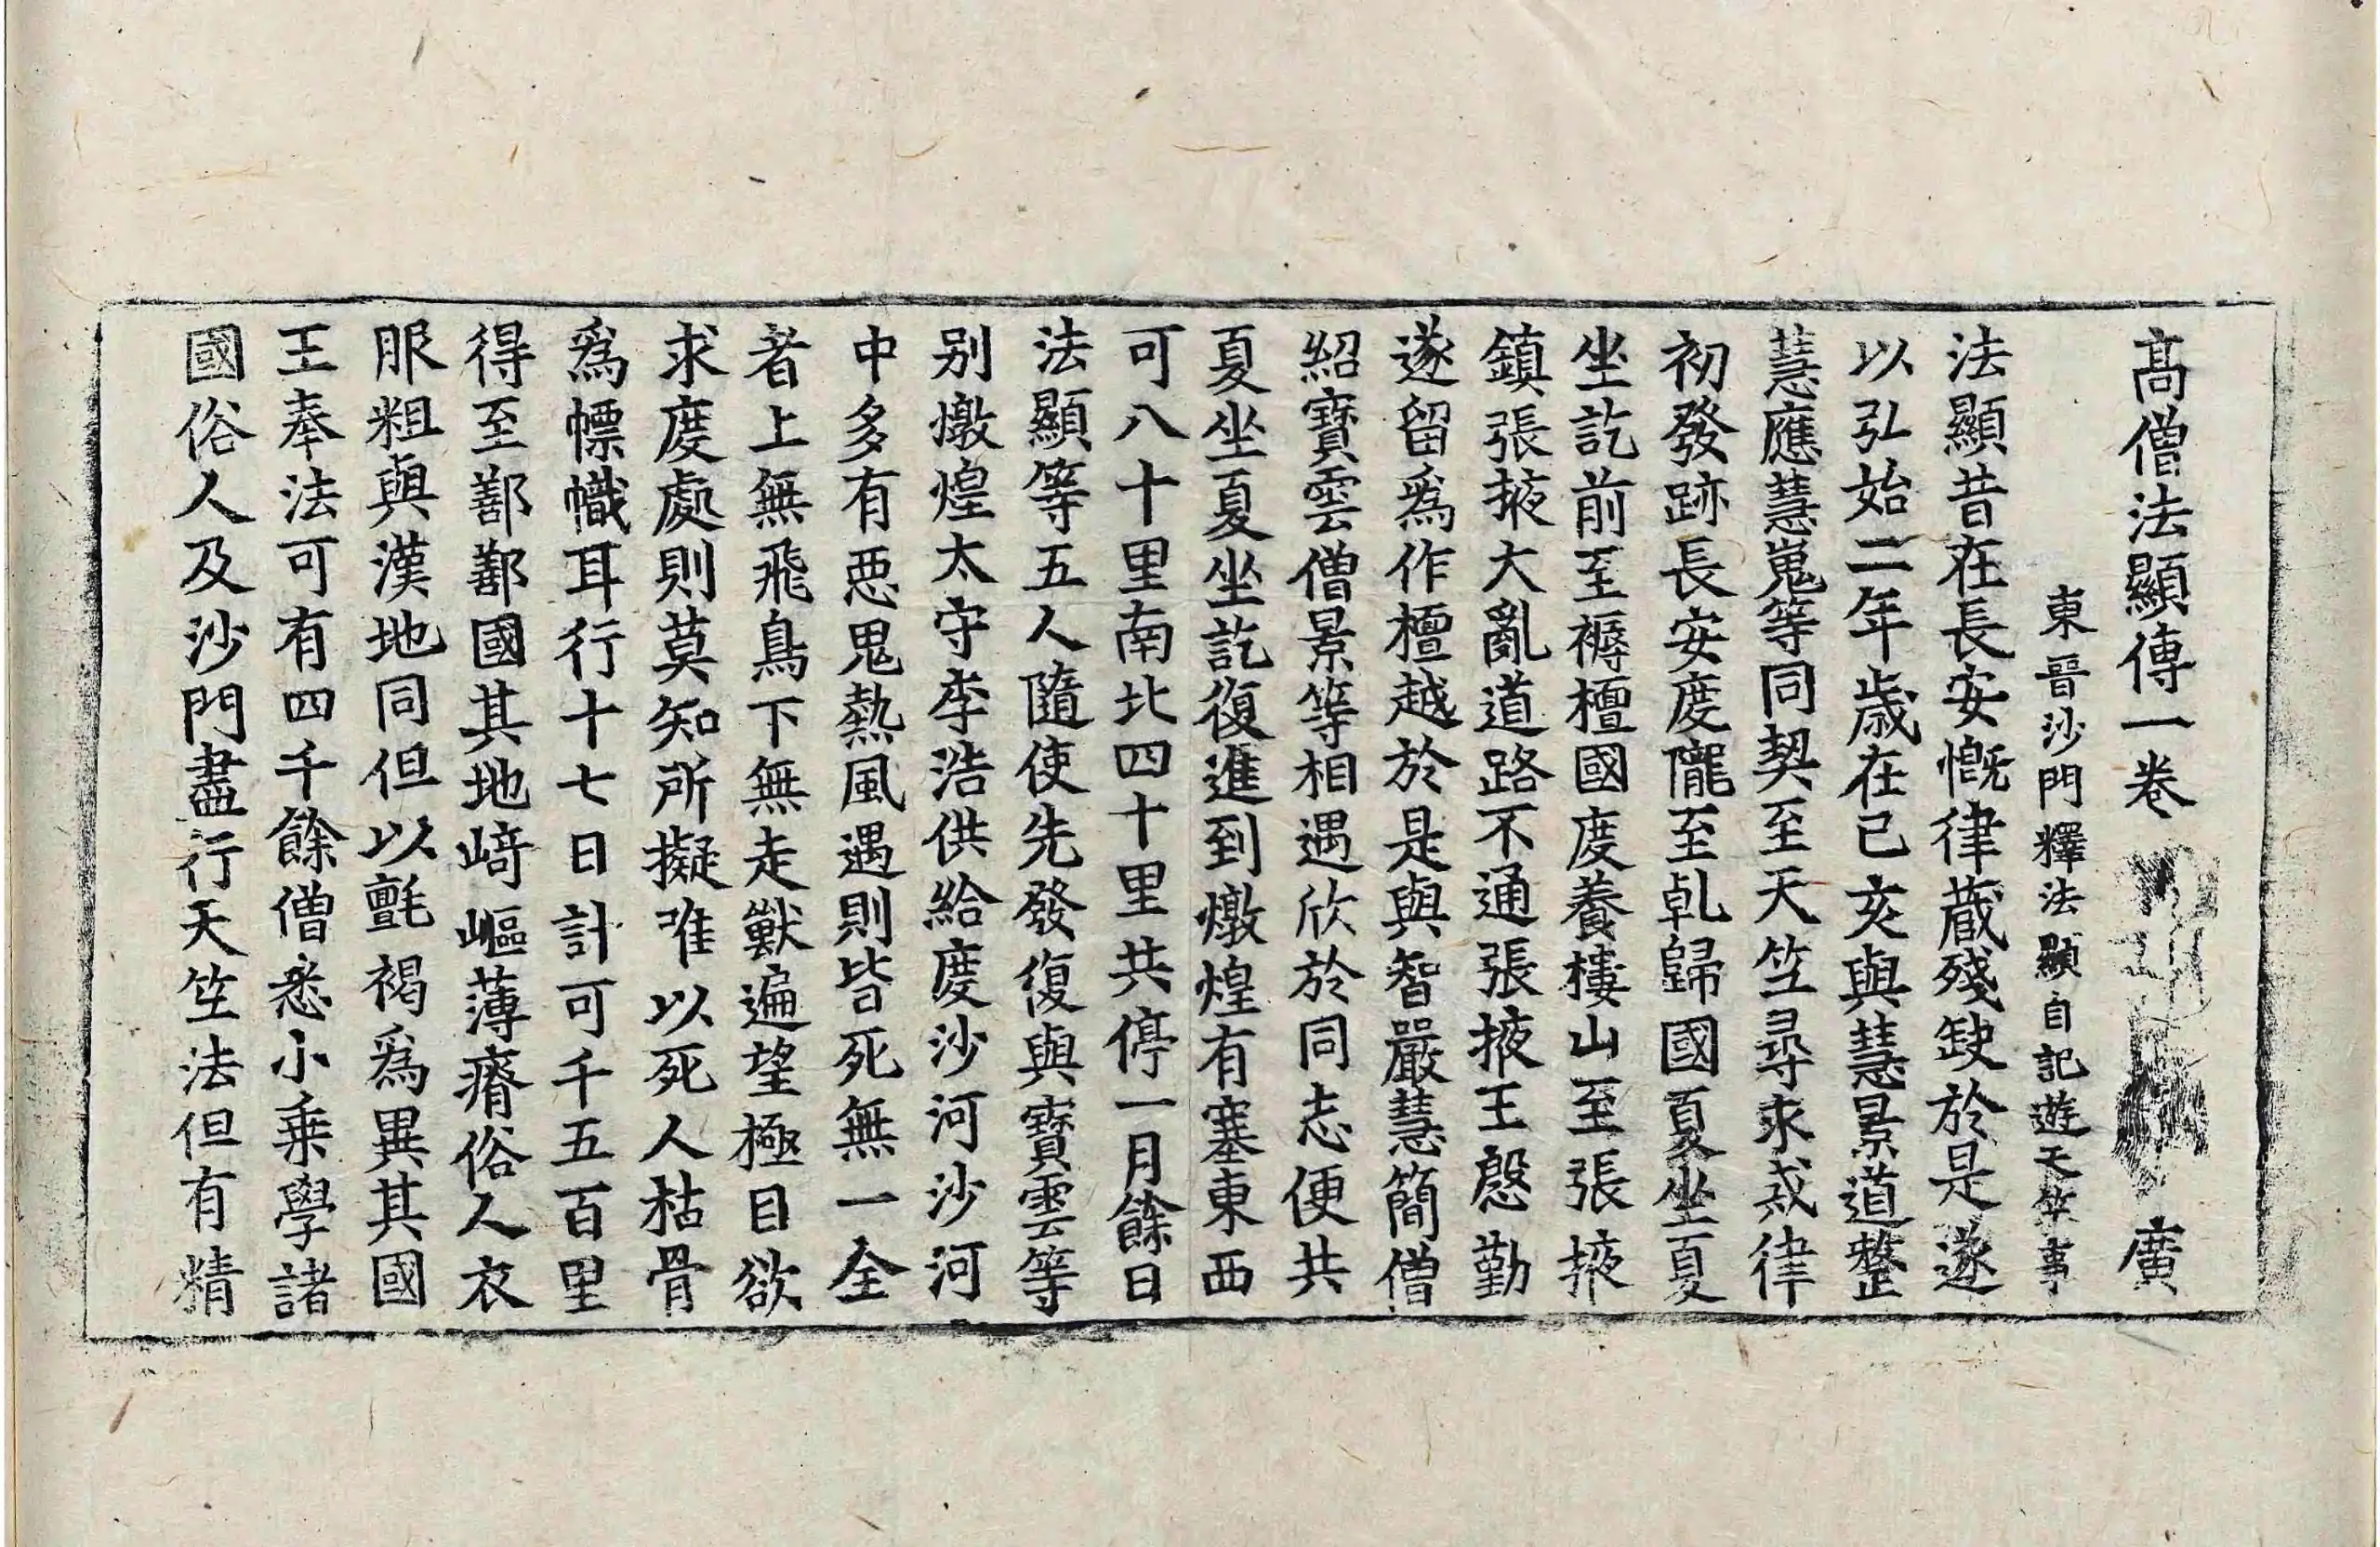 髙僧法顯傳一卷 廣
東晉沙門釋法顯自記遊天竺事
法顯昔在長安慨律蔵殘缺於是遂
以弘始二年歳在己亥與慧景道整
慧應慧嵬等同契至天竺尋求戒律
初發跡長安度隴至乹歸國夏坐夏
坐訖前至褥檀國度養樓山至張掖
鎮張掖大亂道路不通張掖王慇勤
遂留爲作檀越於是與智嚴慧簡僧
紹寶雲僧景等相遇欣於同志便共
夏坐夏坐訖復進到燉煌有塞東西
可八十里南北四十里共停一月餘日
法顯等五人隨使先發復與寶雲等
别燉煌太守李浩供給度沙河沙河
中多有惡鬼熱風遇則皆死無一全
者上無飛鳥下無走獸遍望極目欲
求度處則莫知所擬唯以死人枯骨
爲幖幟耳行十七日計可千五百里
得至鄯鄯國其地崎嶇薄瘠俗人衣
服粗與漢地同但以氈褐爲異其國
王奉法可有四千餘僧悉小乗學諸
國俗人及沙門盡行天竺法但有精